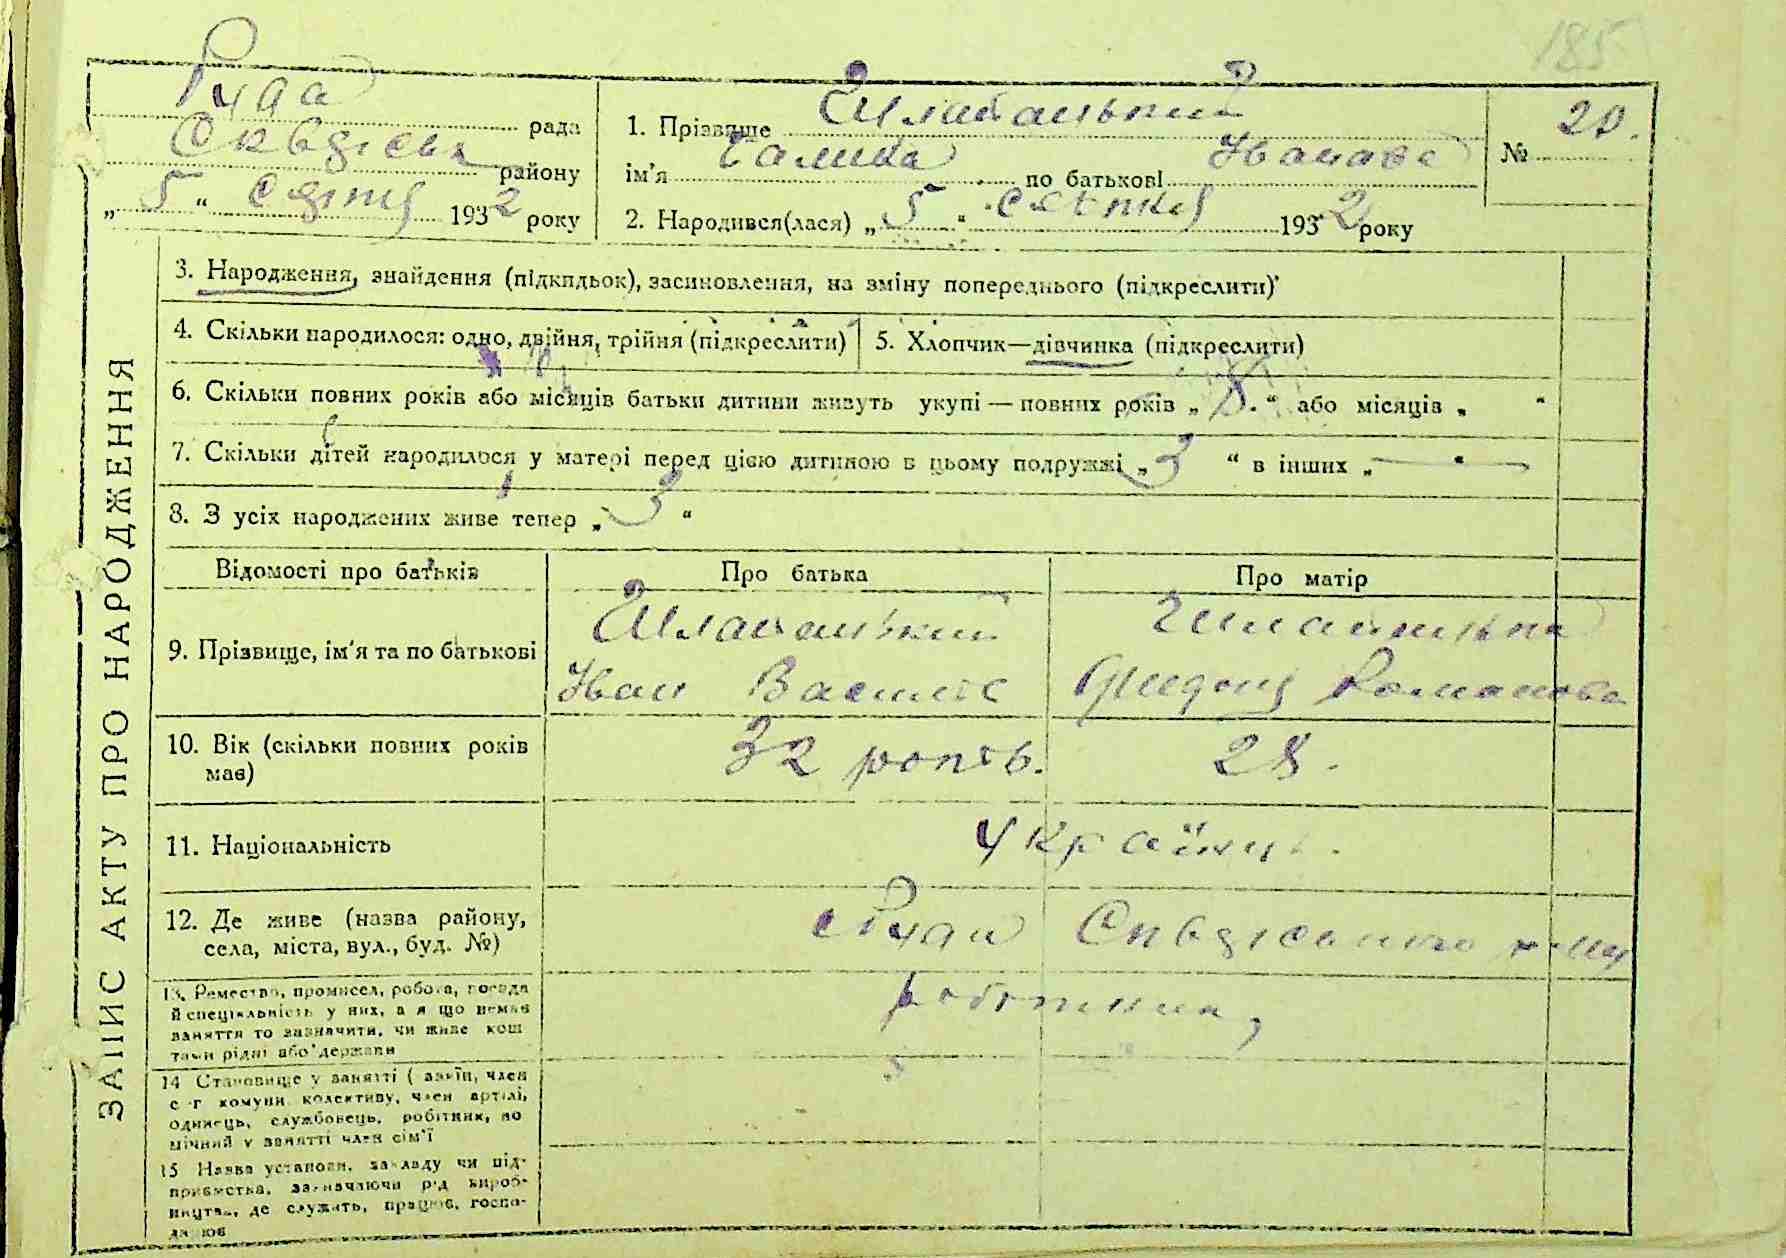 185
Руда рада
Сквирськ району
„ 5 “ 1932 року
1. Прізвище
ім'я Галина по батькові Іванова
№ 20.
2. Народився(лася) „ 5 “ 1932 року
ЗАПИС АКТУ ПРО НАРОДЖЕННЯ
3. Народження, знайдення (підкидьок), засиновлення, на зміну попереднього (підкреслити)
4. Скільки народилося: одно, двійня, трійня (підкреслити)
5. Хлопчик—дівчинка (підкреслити)
6. Скільки повних років або місяців батьки дитини живуть укупі — повних років „ 8. “ або місяців „ “
7. Скільки дітей народилося у матері перед цією дитиною в цьому подружжі „ 3 “ в інших „ — “
8. З усіх народжених живе тепер „ 3 “
Відомості про батьків
Про батька
Про матір
9. Прізвище, ім'я та по батькові
Іван Василів
Романова
10. Вік (скільки повних років
має)
32 років.
28.
11. Національність
Українці.
12. Де живе (назва району,
села, міста, вул., буд. №)
с Руда Сквирського р-ну
13. Ремество, промисел, робота, посада
й спеціяльність у них, а я що немає
заняття то зазначити, чи живе кош
тами рідні або держави
14 Становище у занятті ( хазяїн, член
с-г комуни, колективу, член артілі,
одинець, службовець, робітник, по
мічний у занятті член сім'ї
15 Назва установи, закладу чи під-
приємства, зазначаючи рід вироб-
ництва, де служить, працює, госпо-
дарює